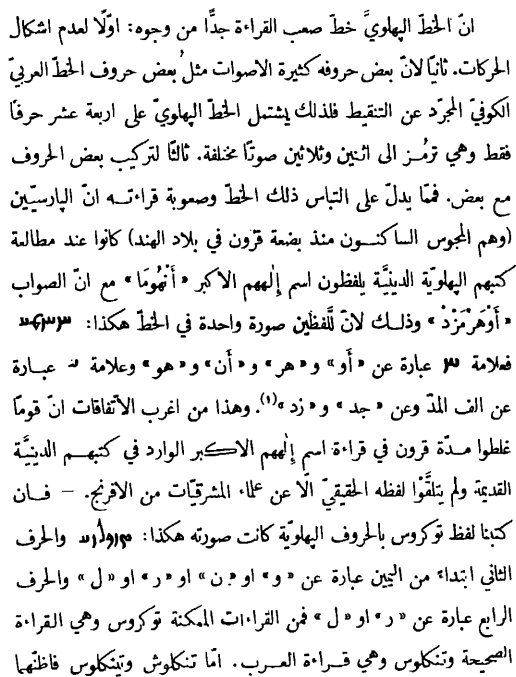 انّ الخطّ الپهلويّ خطّ صعب القراءة جدًّا من وجوه: اوّلًا لعدم اشكال
الحركات. ثانيًا لانّ بعض حروفه كثيرة الاصوات مثلُ بعض حروف الخطّ العربيّ
الكوفيّ المجرّد عن التنقيط فلذلك يشتمل الخطّ الپهلويّ على اربعة عشر حرفًا
فقط وهي ترمُز الى اثنين وثلاثين صوتًا مختلفة. ثالثًا لتركيب بعض الحروف
مع بعض. فممّا يدلّ على التباس ذلك الخطّ وصعوبة قراءتـه انّ الپارسيّين
(وهم المجوس الساكنـون منذ بضعة قرون في بلاد الهند) كانوا عند مطالعة
كتبهم الپهلويّة الدينيَّة يلفظون اسم إلٰههم الأكبر «أَنْهُومَا» مع انّ الصواب
«أَوْهَرْمَزْدْ» وذلـك لانّ للَّفظين صورة واحدة في الخطّ هكذا:
فعلامة عبارة عن «أو» و«هر» و«أن» و«هو» وعلامة عبـارة
عن الف المدّ وعن «جد» و«زد»(١). وهذا من اغرب الأتفاقات انّ قومًا
غلطوا مدّة قرون في قراءة اسم إلٰههم الاكبر الوارد في كتبهـم الدينيَّة
القديمة ولم يتلقَّوْا لفظه الحقيقيّ الّا عن علماء المشرقيّات من الافرنج. – فـان
كتبنا لفظ توكروس بالحروف الپهلويّة كانت صورته هكذا: والحرف
الثاني ابتداءً من اليمين عبارة عن «و» او«ن» او «ر» او «ل» والحرف
الرابع عبارة عن «ر» او «ل» فمن القراءات الممكنة توكروس وهي القراءة
الصحيحة وتنكلوس وهي قـراءة العـرب. امّا تنكلوش وتينكلوس فاظنّهما